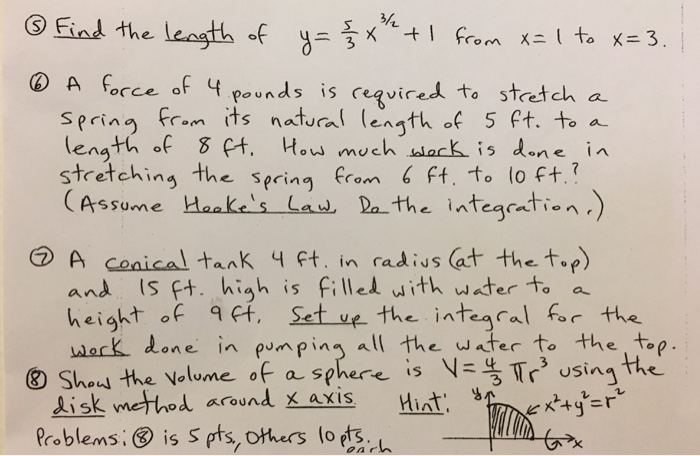 ⑤ Find the length of y = 5/3 x^3/2 + 1 from x = 1 to x = 3.
⑥ A force of 4 pounds is required to stretch a
spring from its natural length of 5 ft. to a
length of 8 ft. How much work is done in
stretching the spring from 6 ft. to 10 ft.?
(Assume Hooke's Law, Do the integration.)
⑦ A conical tank 4 ft. in radius (at the top)
and 15 ft. high is filled with water to a
height of 9 ft, Set up the integral for the
work done in pumping all the water to the top.
⑧ Show the volume of a sphere is V = 4/3 πr³ using the
disk method around x axis Hint: y x²+y²=r² x
Problems: ⑧ is 5 pts., Others 10 pts. each